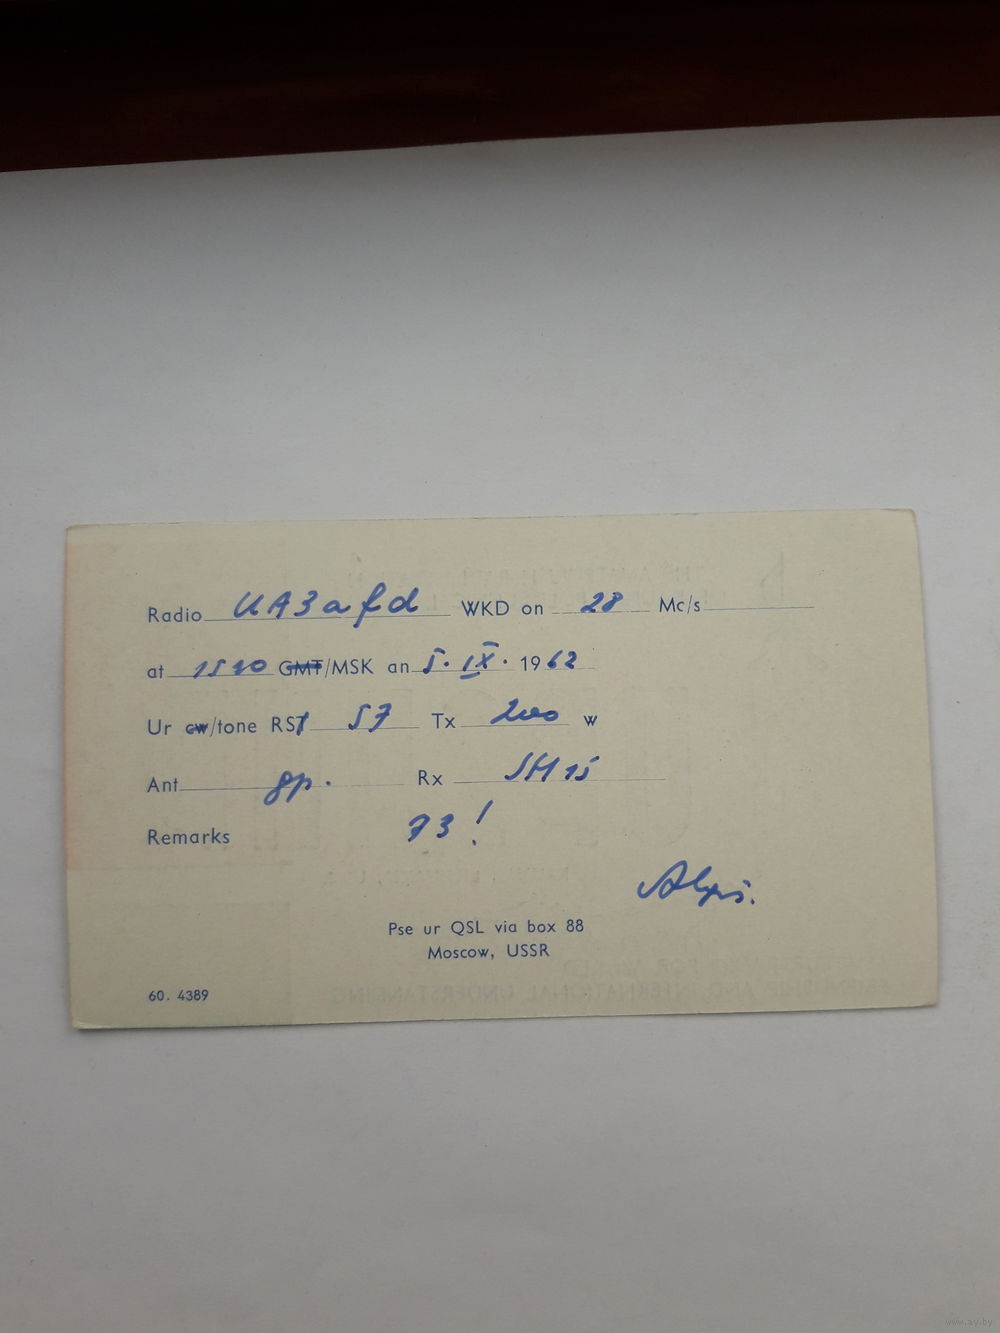 Radio UA3afd WKD on 28 Mc/s
at 1510 GMT/MSK an 5. IX. 1962
Ur cw/tone RST 57 Tx 200 w
Ant gp. Rx
Remarks 73!
Pse ur QSL via box 88
Moscow, USSR
60. 4389
www.ay.by